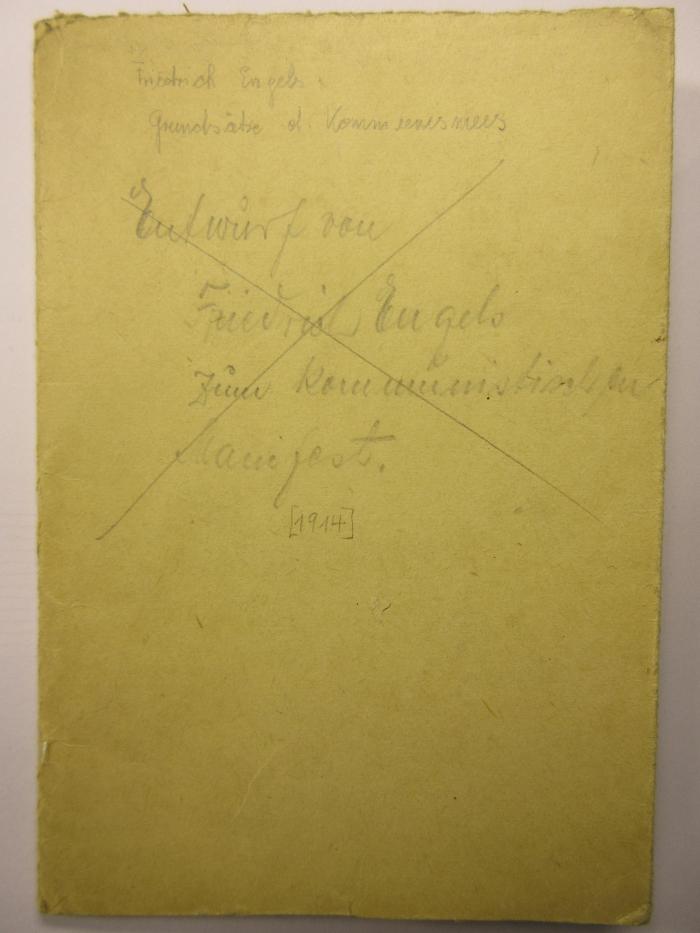 Friedrich Engels.
Grundsätze d. Kommunismus
Entwurf von
Friedrich Engels
zum Kommunistischen
Manifest.
[1914]